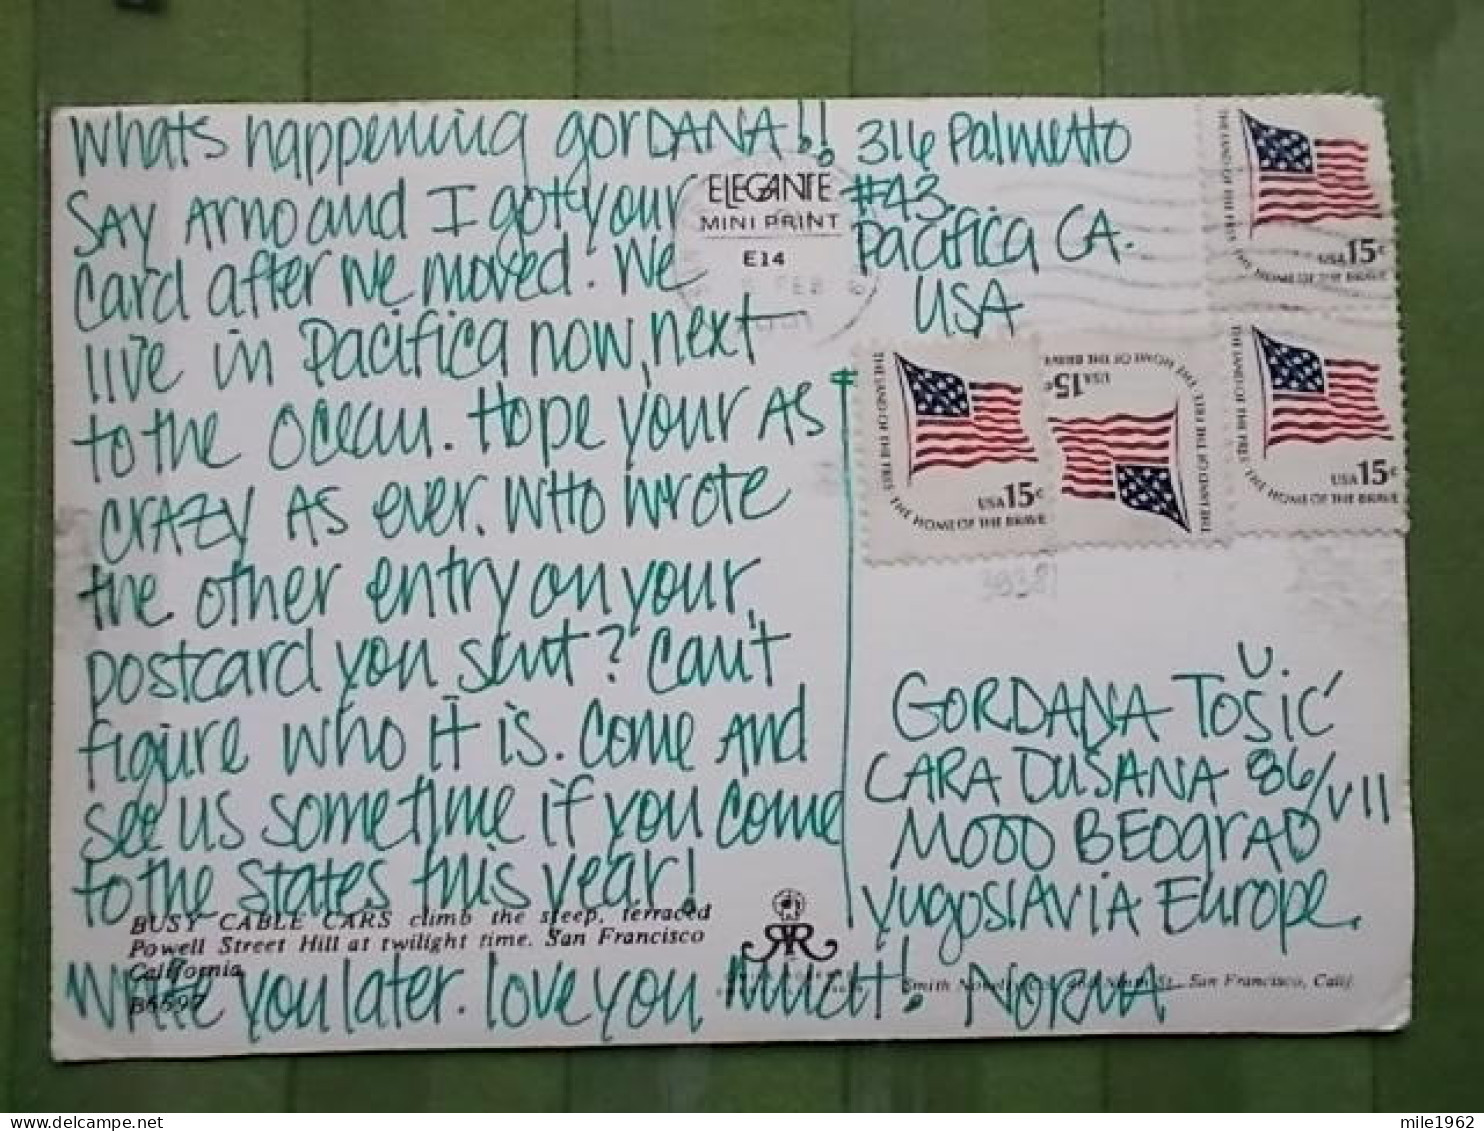 Whats happening gorDANA!!
SAY Arno and I got your
Card after we moved. We
live in Pacifica now, next
to the ocean. Hope your AS
CRAZY AS ever. Who wrote
the other entry on your
postcard you sent? Can't
figure who it is. Come and
see us sometime if you come
to the states this year!
Write you later. Love you Much! NORMA
BUSY CABLE CARS climb the steep, terraced
Powell Street Hill at twilight time. San Francisco
California
B6597
ELEGANTE
MINI PRINT
E14
FEB
316 Palmetto
#43.
Pacifica CA.
USA
THE LAND OF THE FREE THE HOME OF THE BRAVE
USA 15c
THE LAND OF THE FREE THE HOME OF THE BRAVE
USA 15c
THE LAND OF THE FREE THE HOME OF THE BRAVE
USA 15c
THE LAND OF THE FREE THE HOME OF THE BRAVE
USA 15c
GORDANA TOŠIĆ
CARA DUŠANA 86/VII
11000 BEOgrAD
YUgOSlAVIA Europe.
Smith St., San Francisco, Calif.
mile1962